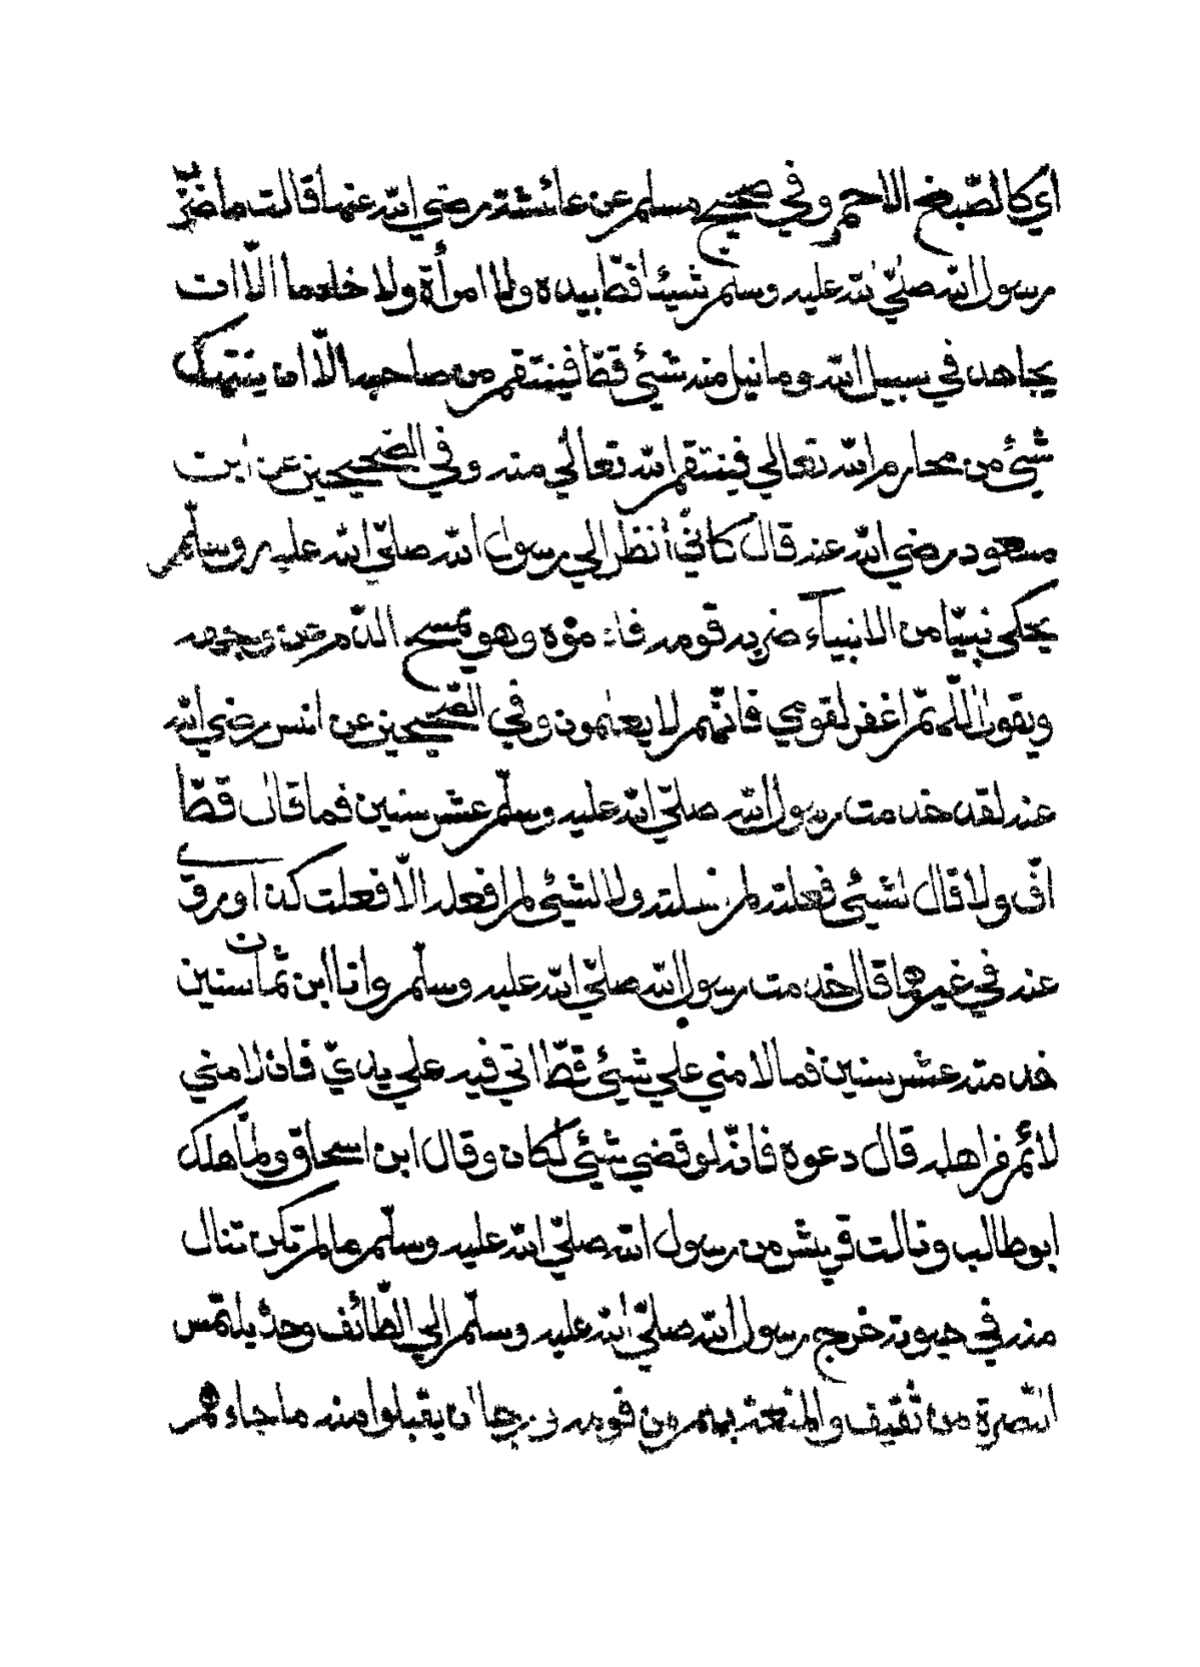 اي كالصّبغ الاحمر وفي صحيح مسلم عن عائشة رضي الله عنها قالت ما ضرب
رسول الله صلّي الله عليه وسلّم شيئا قطّ بيده ولا امرأة ولا خادما الّا ان
يجاهد في سبيل الله وما نيل منه شئي قطّ فينتقم من صاحبه الّا ان ينتهك
شئي من محارم الله تعالي فينتقم لله تعالي منه وفي الصّحيحين عن ابن
مسعود رضي الله عنه قال كانّي أنظر الي رسول الله صلّي الله عليه وسلّم
يحكي نبيّا من الانبيآء ضربه قومه فادموْه وهو يمسح الدّم عن وجهه
ويقول اللّهمّ اغفر لقومي فانّهم لا يعلمون وفي الصّحيحين عن انس رضي الله
عنه لقد خدمت رسول الله صلّي الله عليه وسلّم عشر سنين فما قال قطّ
افّ ولا قال لشئي فعلته لم فعلته ولا لشئي لم افعله الّا فعلت كذا وروي
عنه في غيرهما قال خدمت رسول الله صلّي الله عليه وسلّم وانا ابن ثمان سنين
خدمته عشر سنين فما لامني علي شئي قطّ اتي فيه علي يديّ فان لامني
لائم من اهله قال دعوه فانّه لو قضي شئي لكان وقال ابن اسحاق ولمّا هلك
ابو طالب ونالت قريش من رسول الله صلّي الله عليه وسلّم ما لم تكن تنال
منه في حيوته خرج رسول الله صلّي الله عليه وسلّم الي الطّائف وحده يلتمس
النّصرة من ثقيف والمنعة بهم من قومه ورجا ان يقبلوا منه ما جاءهم